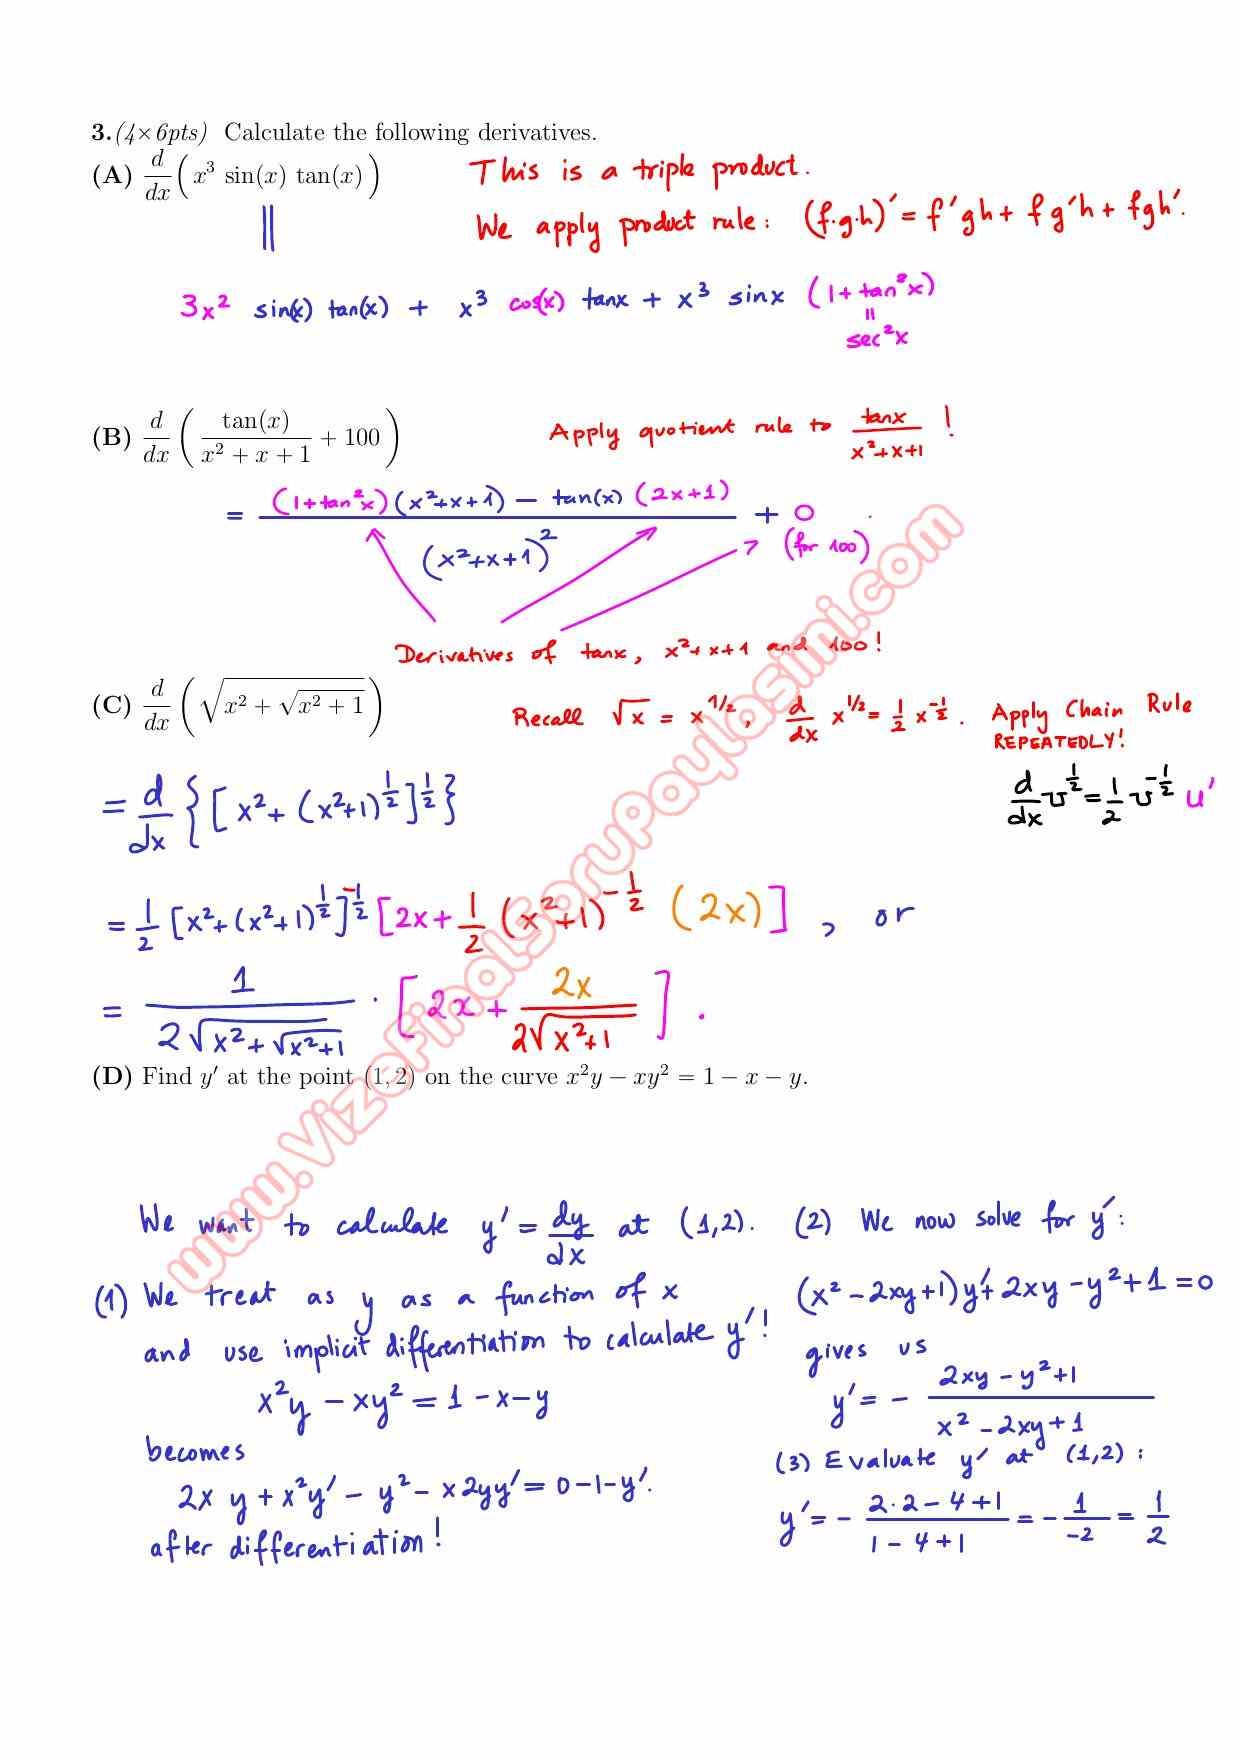 3.(4×6pts) Calculate the following derivatives.
(A) d/dx (x³ sin(x) tan(x))
This is a triple product.
We apply product rule: (f·g·h)′ = f′gh + fg′h + fgh′.
||
3x² sin(x) tan(x) + x³ cos(x) tanx + x³ sinx (1+tan²x)
=
sec²x
(B) d/dx (tan(x)/(x² + x + 1) + 100)
Apply quotient rule to tanx/(x²+x+1) !
= ((1+tan²x)(x²+x+1) − tan(x) (2x+1))/(x²+x+1)² + 0
(for 100)
Derivatives of tanx, x²+x+1 and 100!
(C) d/dx (√(x² + √(x² + 1)))
Recall √x = x^(1/2), d/dx x^(1/2) = 1/2 x^(-1/2). Apply Chain Rule
REPEATEDLY!
= d/dx {[x² + (x²+1)^(1/2)]^(1/2)}
d/dx u^(1/2) = 1/2 u^(-1/2) u'
= 1/2 [x²+(x²+1)^(1/2)]^(-1/2) [2x + 1/2 (x²+1)^(-1/2) (2x)] , or
= 1/(2√(x²+√(x²+1))) · [2x + 2x/(2√(x²+1))] .
(D) Find y′ at the point (1, 2) on the curve x²y − xy² = 1 − x − y.
We want to calculate y′ = dy/dx at (1,2).
(1) We treat as y as a function of x
and use implicit differentiation to calculate y′!
x²y − xy² = 1 − x − y
becomes
2x y + x²y′ − y² − x2yy′ = 0−1−y′.
after differentiation!
(2) We now solve for y′:
(x² − 2xy + 1)y′ + 2xy − y² + 1 = 0
gives us
y′ = − (2xy − y² + 1)/(x² − 2xy + 1)
(3) Evaluate y′ at (1,2):
y′ = − (2·2 − 4 + 1)/(1 − 4 + 1) = − 1/−2 = 1/2
www.VizeFinalSoruPaylasimi.com